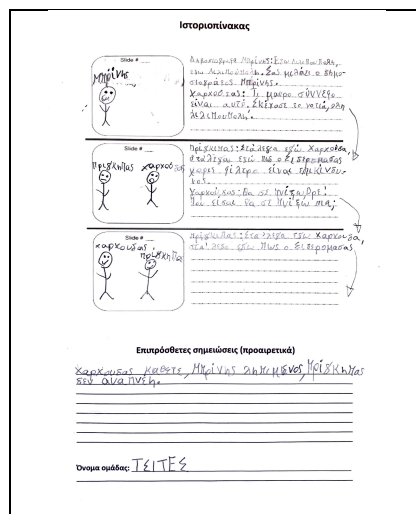 Ιστοριοπίνακας
Slide # ___
Μπρίνης
Δημοσιογράφος Μπρίνης: Εδώ Λιλιπούπολη,
εδώ Λιλιπούπολη. Σας μιλάει ο δημο-
σιογράφος Μπρίνης.
Χαρχούδας: Τι μαύρο σύννεφο
είναι αυτό. Σκέπασε τα νησιά, όλη
Λιλιπούπολη.
Slide # ___
Πρίγκηπας Χαρχούδας
Πρίγκηπας: Στα 'λεγα εγώ Χαρχούδα,
στα 'λεγα εγώ πως ο Σιδερομασας
χωρίς φίλτρο είναι επικίνδυ-
νος.
Χαρχούδας: Θα σε πνίξω βρε!
Που είσαι, θα σε πνίξω πια;
Slide # ___
Χαρχούδας Πρίγκηπας
Πρίγκηπας: Στα 'λεγα εγώ Χαρχούδα,
στα 'λεγα εγώ πως ο Σιδερομασας
Επιπρόσθετες σημειώσεις (προαιρετικά)
Χαρχούδας κάθετε, Μπρίνης λημεμενος, Πρίγκηπας
δεν αναπνέη.
Όνομα ομάδας: ΤΣΙΤΕΣ